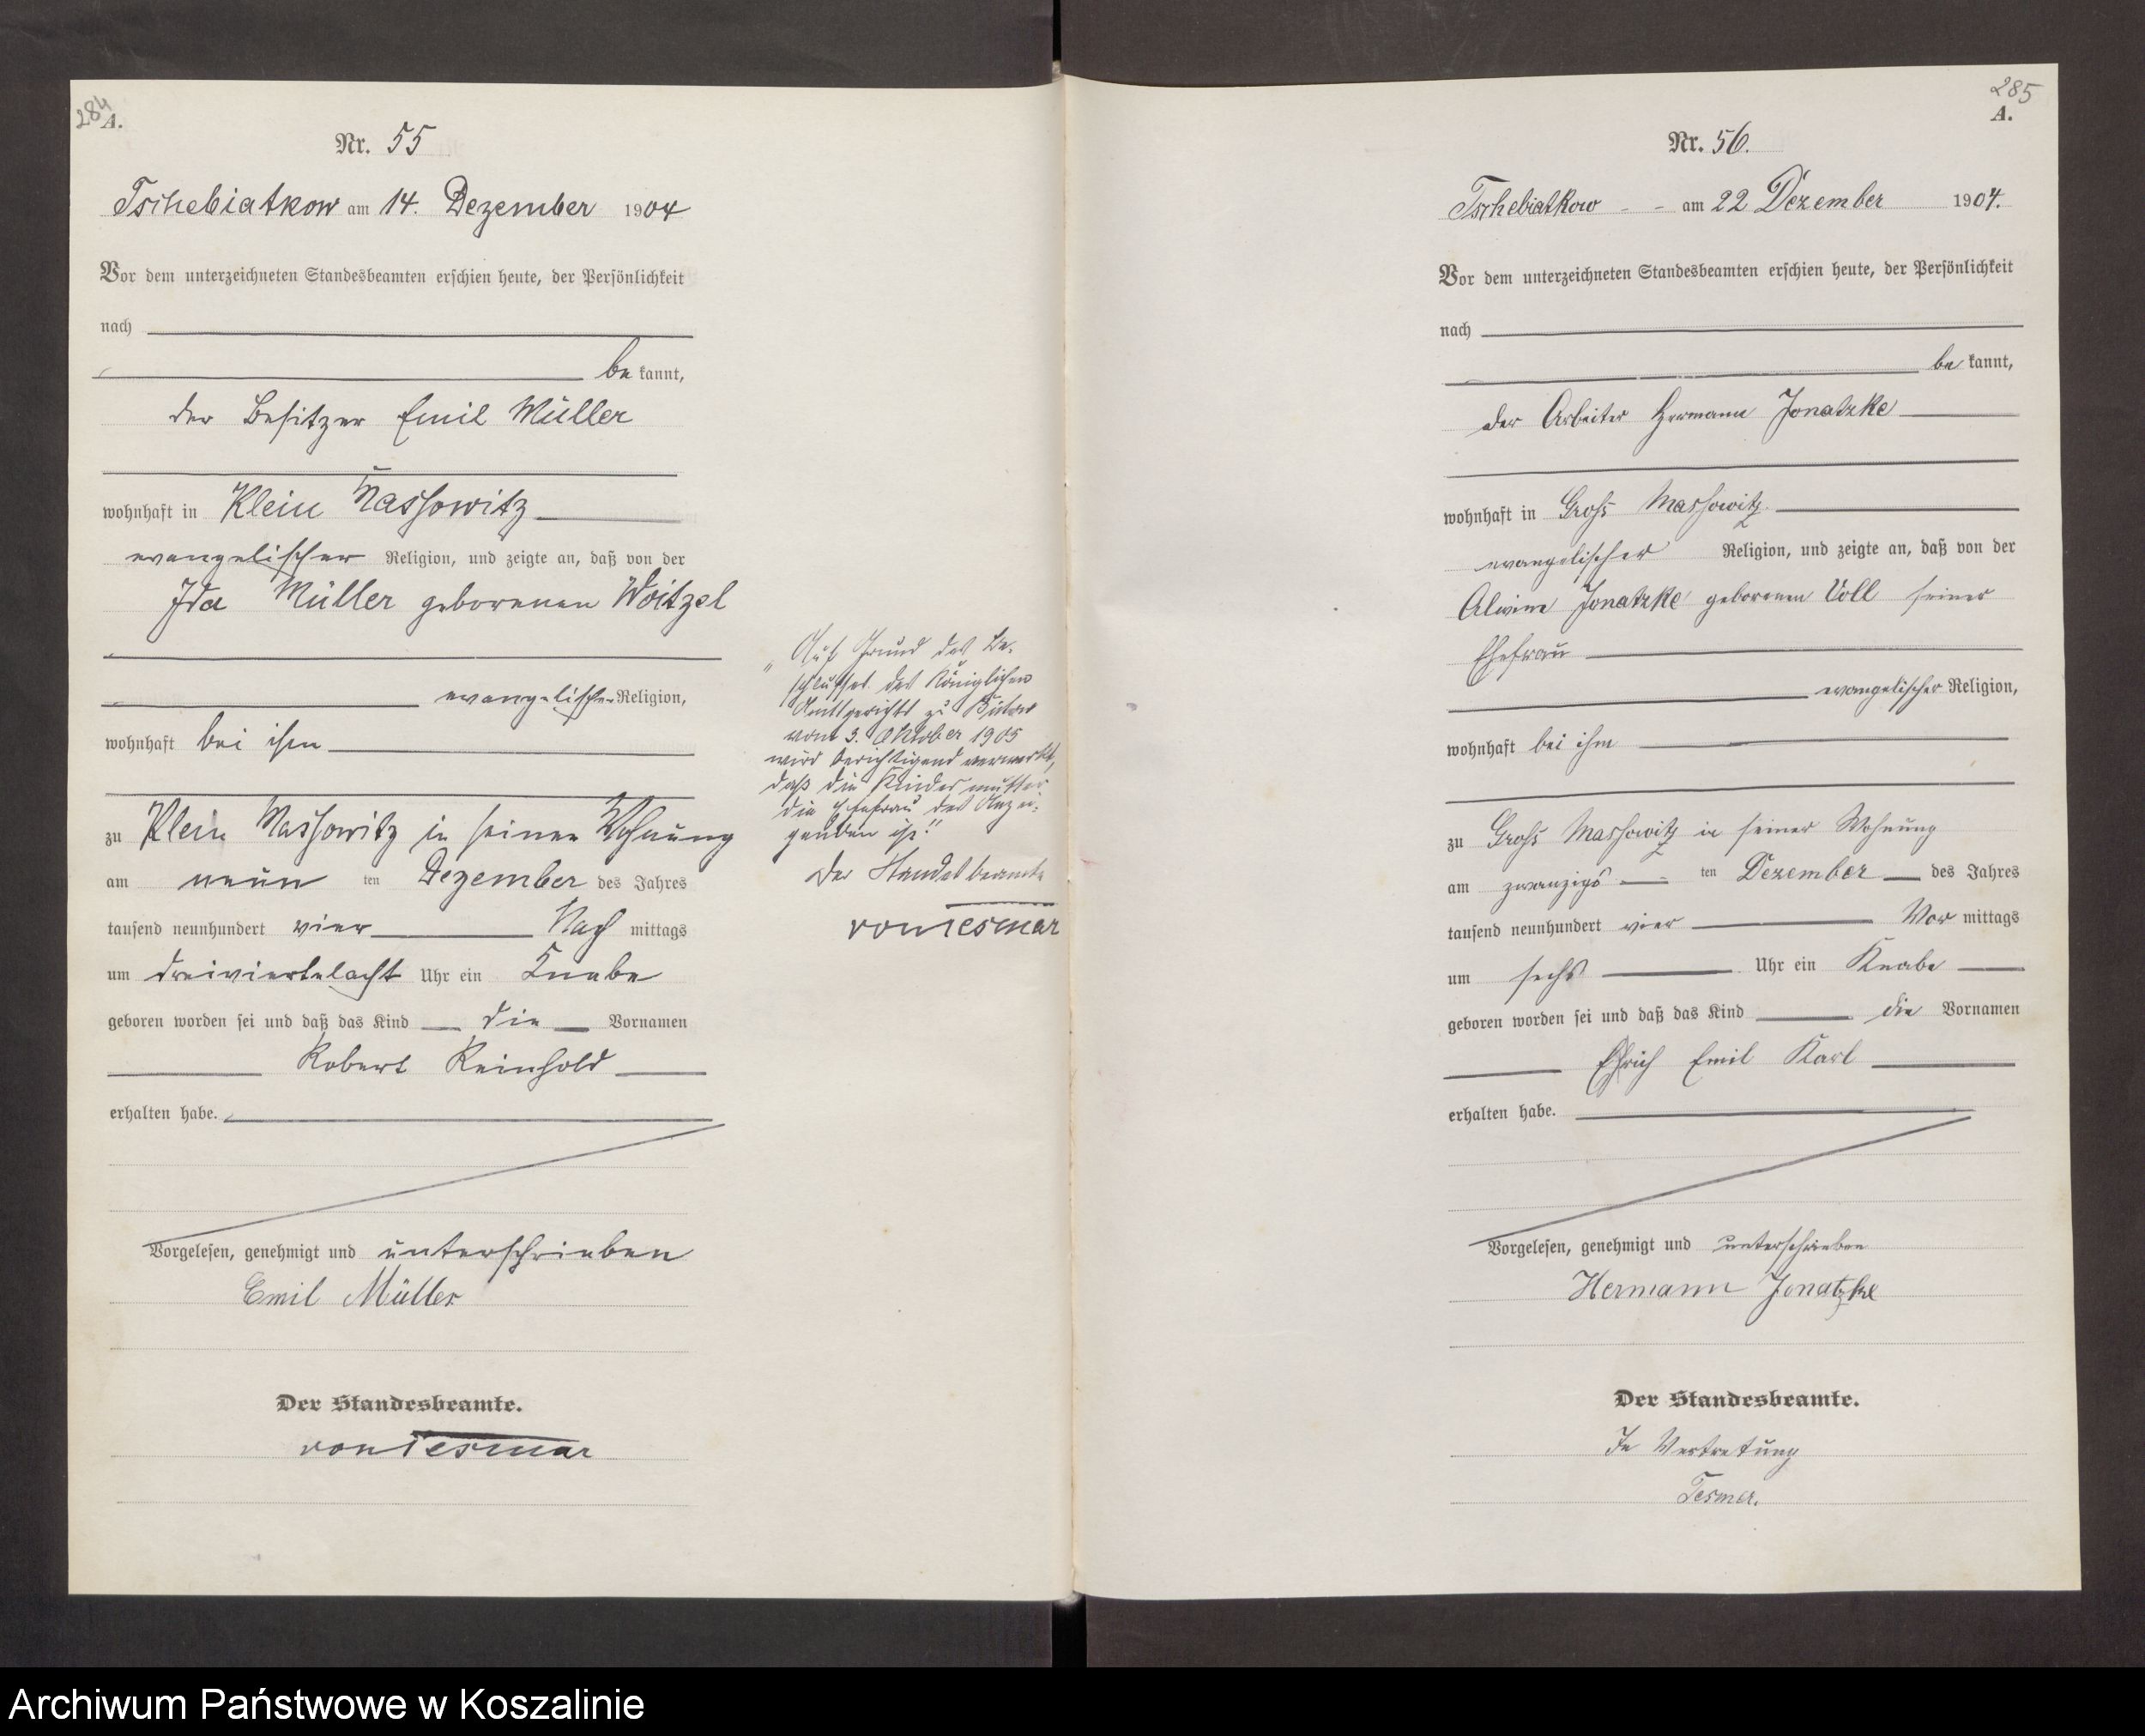 284
A.
Nr. 55
Tschebiatkow am 14. Dezember 1904
Vor dem unterzeichneten Standesbeamten erschien heute, der Persönlichkeit
nach
be kannt,
der Besitzer Emil Müller
wohnhaft in Klein Massowitz
evangelischer Religion, und zeigte an, daß von der
Ida Müller geborenen Woitzel
evangelischer Religion,
wohnhaft bei ihm
zu Klein Massowitz in seiner Wohnung
am neun ten Dezember des Jahres
tausend neunhundert vier Nach mittags
um dreiviertelacht Uhr ein Knabe
geboren worden sei und daß das Kind die Vornamen
Robert Reinhold
erhalten habe.
Vorgelesen, genehmigt und unterschrieben
Emil Müller
Der Standesbeamte.
von Tesmar
„Auf Grund des Be-
schlusses des Königlichen
Amtsgerichts zu Bütow
vom 3. Oktober 1905
wird berichtigend vermerkt,
daß die Kindesmutter
die Ehefrau des Anzei-
genden ist."
Der Standesbeamte
von Tesmar
285
A.
Nr. 56.
Tschebiatkow - - am 22 Dezember 1904.
Vor dem unterzeichneten Standesbeamten erschien heute, der Persönlichkeit
nach
be kannt,
der Arbeiter Hermann Jonatzke
wohnhaft in Groß Massowitz
evangelischer Religion, und zeigte an, daß von der
Alwine Jonatzke geborenen Voll seiner
Ehefrau
evangelischer Religion,
wohnhaft bei ihm
zu Groß Massowitz in seiner Wohnung
am zwanzigs ten Dezember des Jahres
tausend neunhundert vier Vor mittags
um sechs Uhr ein Knabe
geboren worden sei und daß das Kind die Vornamen
Ehrich Emil Karl
erhalten habe.
Vorgelesen, genehmigt und unterschrieben
Hermann Jonatzke
Der Standesbeamte.
In Vertretung
Tesmer.
Archiwum Państwowe w Koszalinie